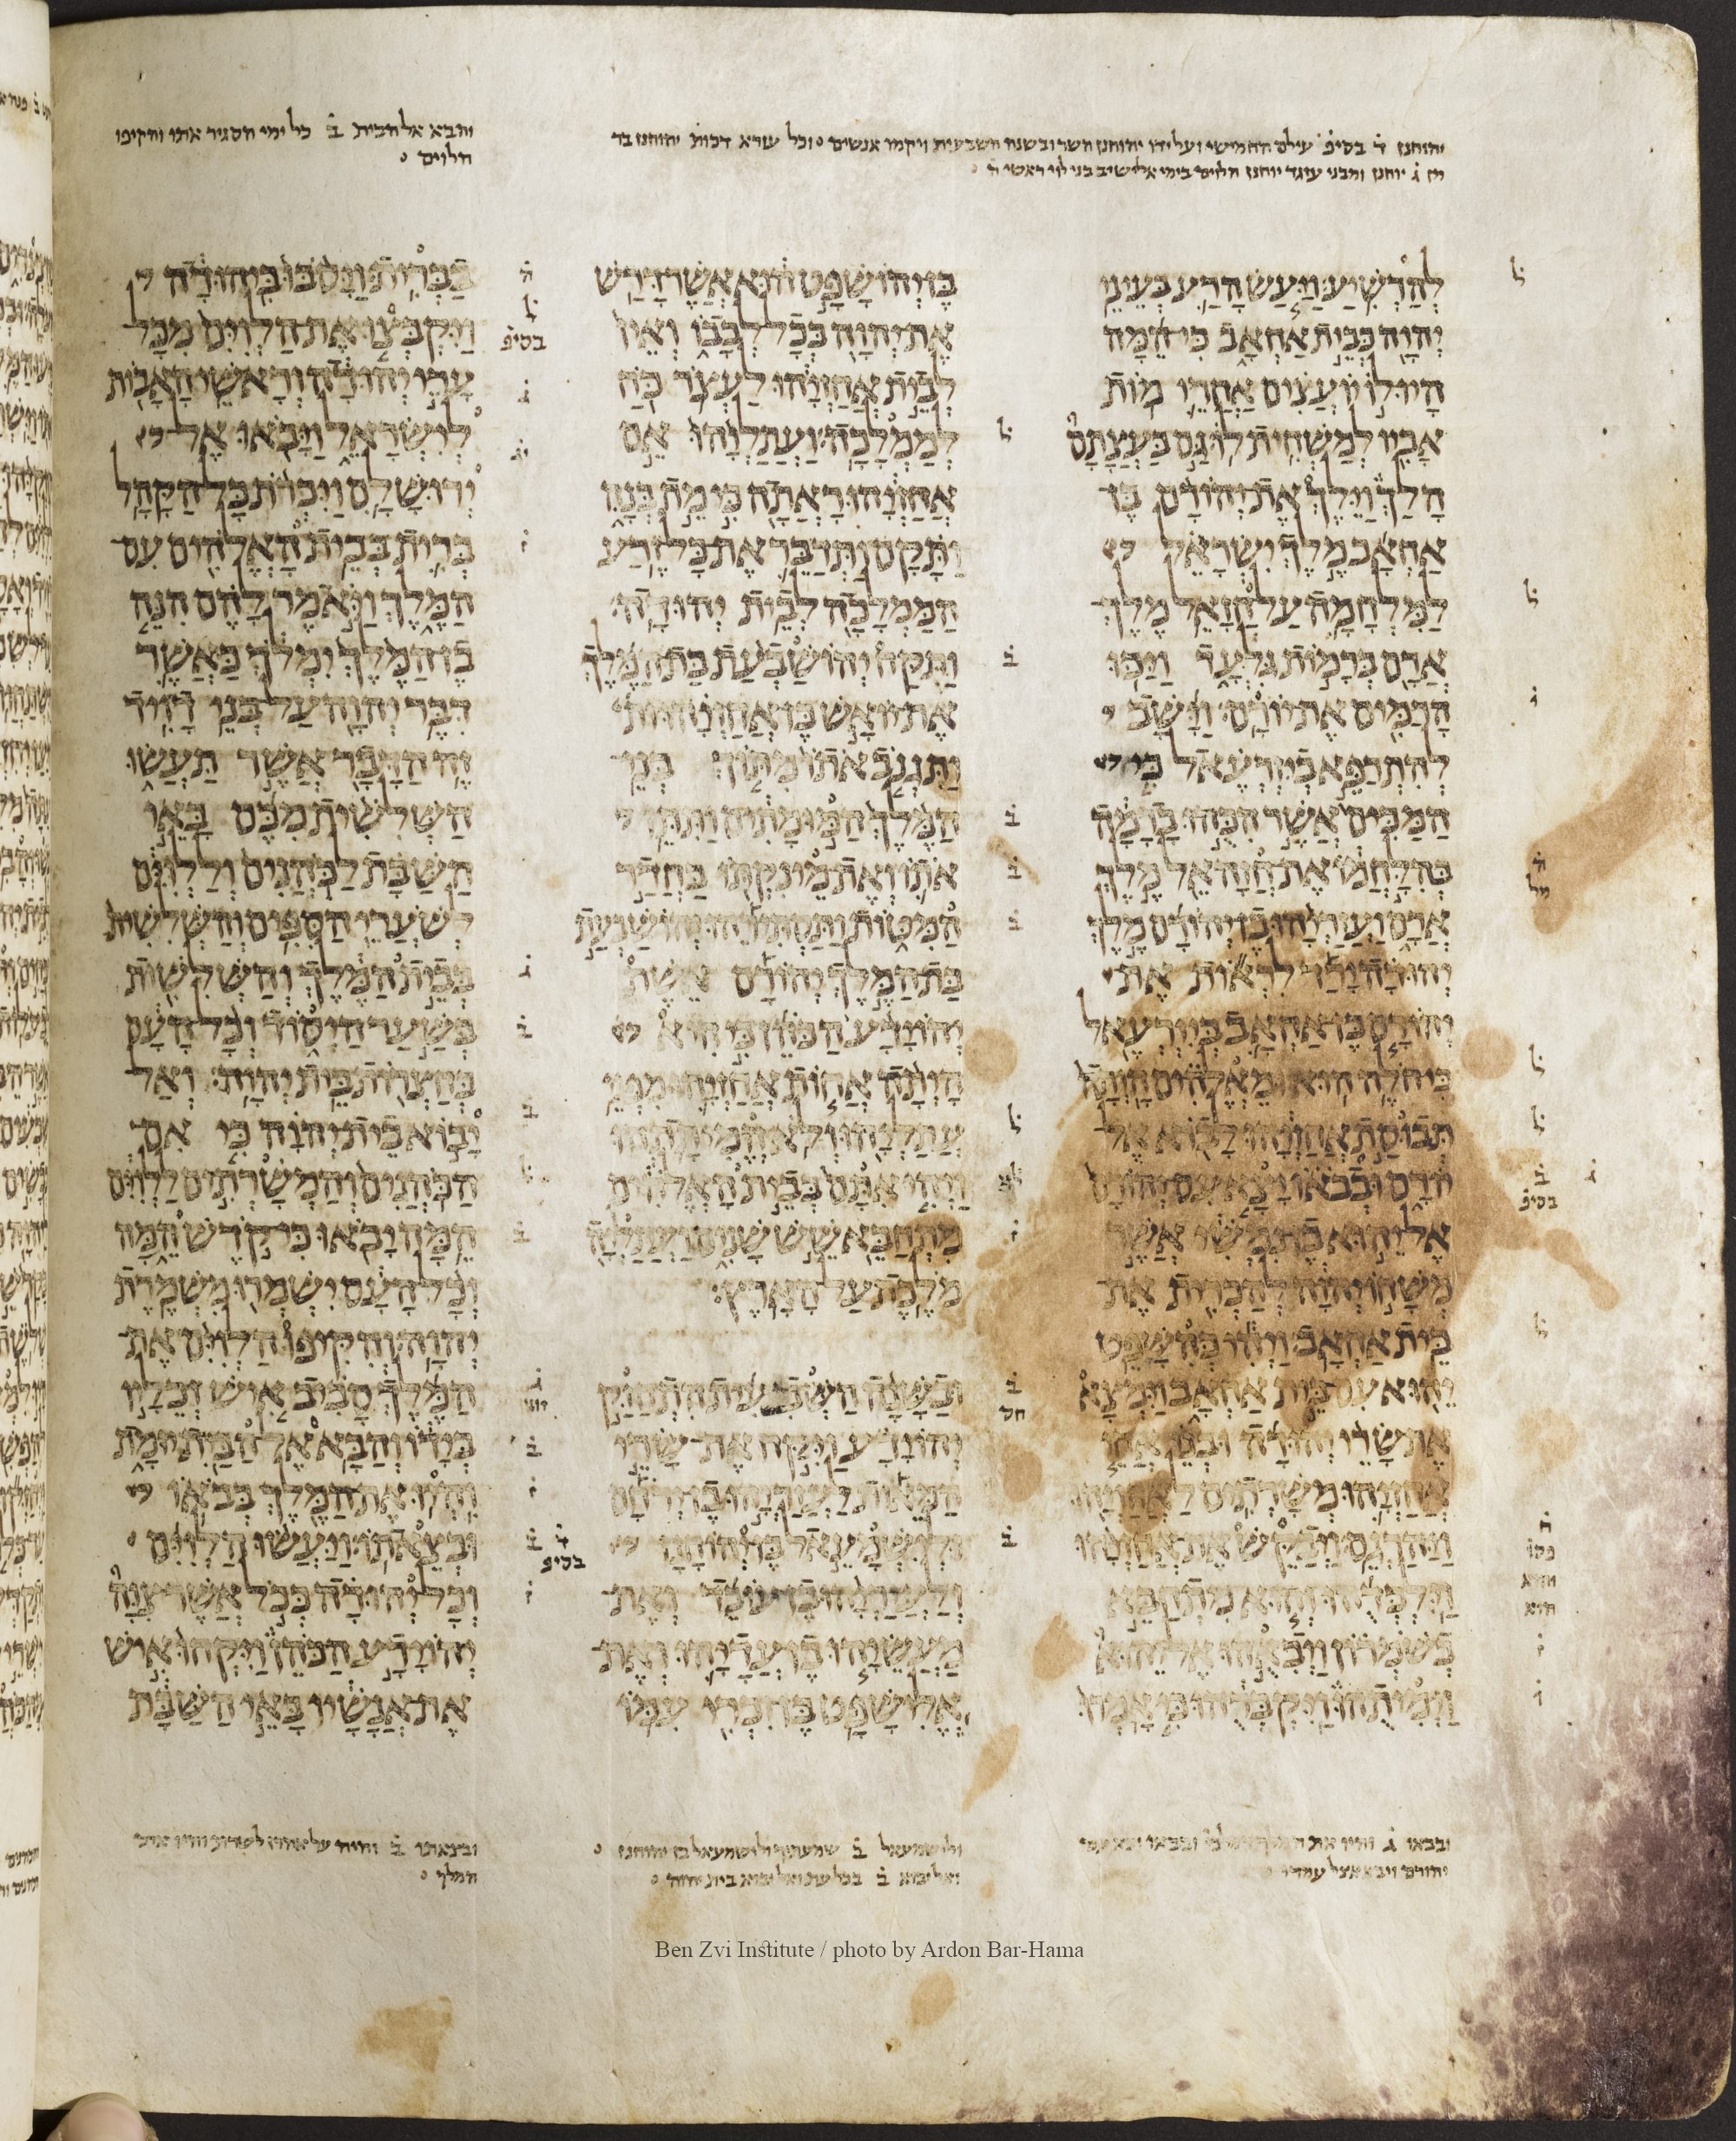 יהוחנן ד בסיפ עילם החמישי ועל ידו יהוחנן השר ובשנה השבעית ויקמו אנשים וכל עזרא דכות יהוחנן בר
מן ג יוחנן ומבני עזגד יוחנן הלוים בימי אלישיב בני לוי ראשי ה
והבא אל הבית ב כל ימי הסגיר אתו והקיפו
הלוים
להרשיע ויעש הרע בעיני
יהוה כבית אחאב כי המה
היו לו יועצים אחרי מות
אביו למשחית לו גם בעצתם
הלך וילך את יהורם בן
אחאב מלך ישראל
למלחמה על חזאל מלך
ארם ברמות גלעד ויכו
הרמים את יורם וישב
להתרפא ביזרעאל כי
המכים אשר הכהו ברמה
בהלחמו את חזהאל מלך
ארם ועזריהו בן יהורם מלך
יהודה ירד לראות את
יהורם בן אחאב ביזרעאל
כי חלה הוא ומאלהים היתה
תבוסת אחזיהו לבוא אל
יורם ובבאו יצא עם יהורם
אל יהוא בן נמשי אשר
משחו יהוה להכרית את
בית אחאב ויהי כהשפט
יהוא עם בית אחאב וימצא
את שרי יהודה ובני אחי
אחזיהו משרתים לאחזיהו
ויהרגם ויבקש את אחזיהו
וילכדהו והוא מתחבא
בשמרון ויבאהו אל יהוא
וימיתהו ויקברהו כי אמרו
בן יהושפט הוא אשר דרש
את יהוה בכל לבבו ואין
לבית אחזיהו לעצר כח
לממלכה ועתליהו אם
אחזיהו ראתה כי מת בנה
ותקם ותדבר את כל זרע
הממלכה לבית יהודה
ותקח יהושבעת בת המלך
את יואש בן אחזיהו
ותגנב אתו מתוך בני
המלך המומתים ותתן
אתו ואת מינקתו בחדר
המטות ותסתירהו יהושבעת
בת המלך יהורם אשת
יהוידע הכהן כי היא
היתה אחות אחזיהו מפני
עתליהו ולא המיתתהו
ויהי אתם בבית האלהים
מתחבא שש שנים ועתליה
מלכת על הארץ
ובשנה השבעית התחזק
יהוידע ויקח את שרי
המאות לעזריהו בן ירחם
ולישמעאל בן יהוחנן
ולעזריהו בן עובד ואת
מעשיהו בן עדיהו ואת
אלישפט בן זכרי עמו
בברית ויסבו ביהודה
ויקבצו את הלוים מכל
ערי יהודה וראשי האבות
לישראל ויבאו אל
ירושלם ויכרת כל הקהל
ברית בבית האלהים עם
המלך ויאמר להם הנה
בן המלך ימלך כאשר
דבר יהוה על בני דויד
זה הדבר אשר תעשו
השלשית מכם באי
השבת לכהנים וללוים
לשערי הספים והשלשית
בבית המלך והשלשית
בשער היסוד וכל העם
בחצרות בית יהוה ואל
יבוא בית יהוה כי אם
הכהנים והמשרתים ללוים
המה יבאו כי קדש המה
וכל העם ישמרו משמרת
יהוה והקיפו הלוים את
המלך סביב איש וכליו
בידו והבא אל הבית יומת
והיו את המלך בבאו
ובצאתו ויעשו הלוים
וכל יהודה ככל אשר צוה
יהוידע הכהן ויקחו איש
את אנשיו באי השבת
ולישמעאל ב שמעתיך ולישמעאל בן יהוחנן
ואל יבוא ב בכל עת ואל יבוא בית יהוה
ובצאתו ב והיה על אהרן לשרת והיו את
המלך
Ben Zvi Institute / photo by Ardon Bar-Hama